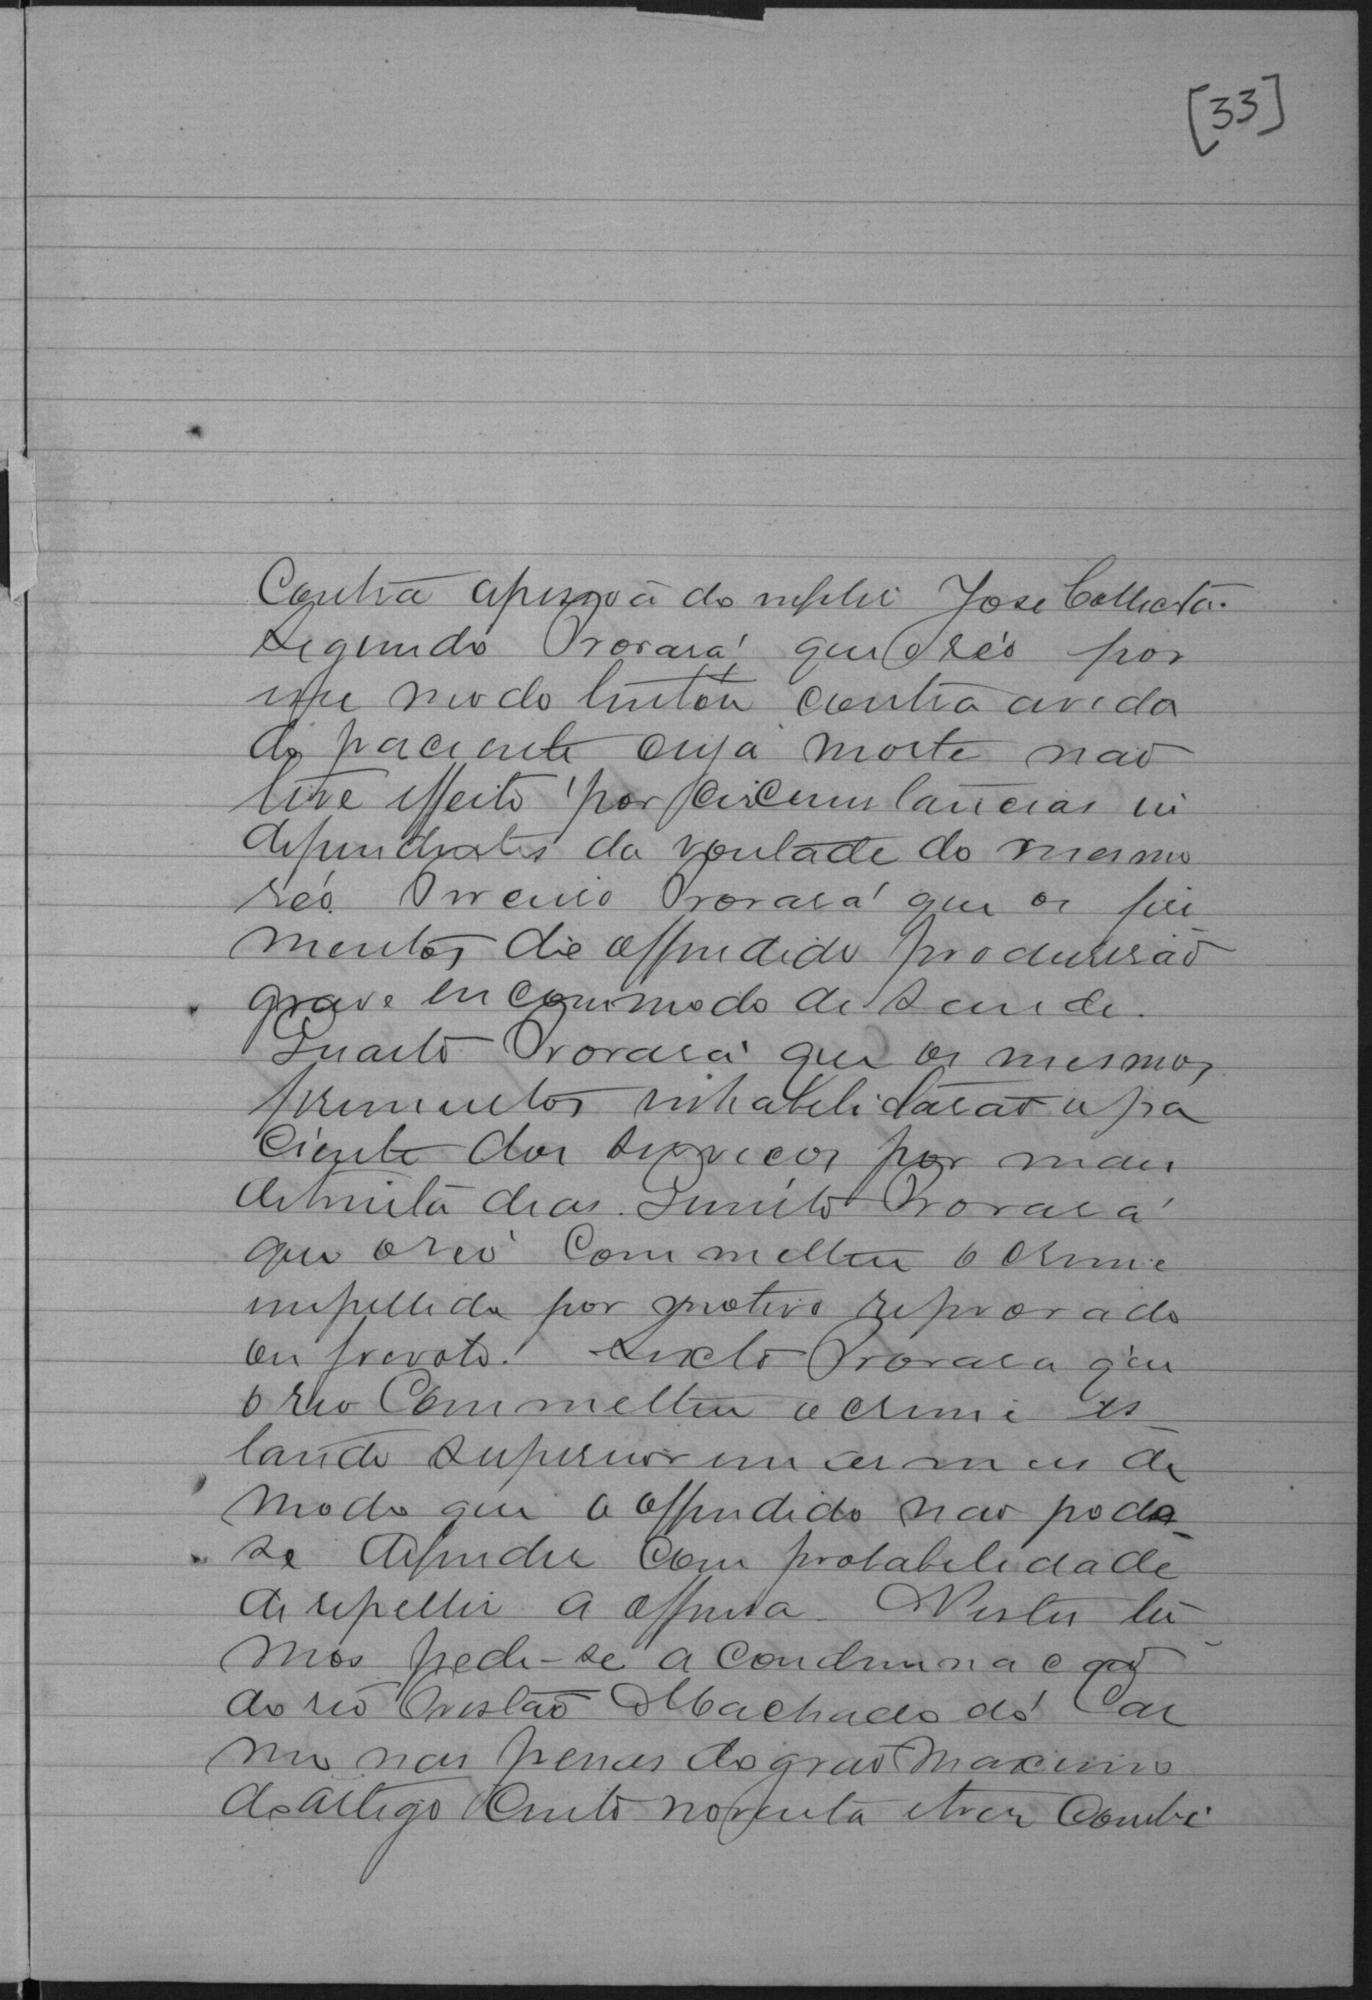 [33]
Contra apessoa do infeliz José Calheita.
Segundo Provará, que o réo por
esse modo tentou contra avida
do paciente cuja morte não
teve effeito por circumstancias in
dependentes da vontade do mesmo
réo. Terceiro Provará que os feri
mentos do offendido produsirão
grave encommodo de saude.
Quarto Provará que os mesmos
ferimentos inhabelidarão o pa
ciente dos serviços por mais
detrinta dias. Quinto Provará
que oreó Commetteu o crime
impellido por motivo reprovado
ou frivolo. Sexto Provara que
o reo Commetteu o crime es
tando superior em armas de
modo que o offendido não podia
se defender com probabelidade
de repellir a offensa. Nestes ter
mos pede-se a condemnacção
do reo Tristão Machado do Car
mo nas penas do grao Maximo
do artigo Cento noventa etrez Combi